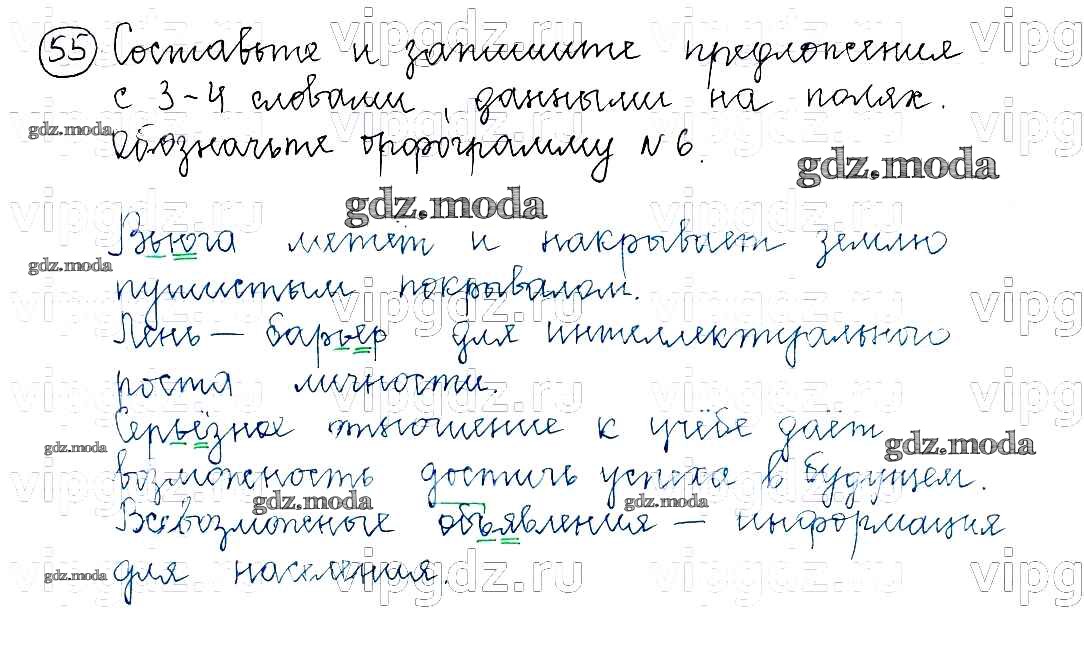 55 Составьте и запишите предложения
с 3-4 словами, данными на полях.
Обозначьте орфограмму №6.
Вьюга метет и накрывает землю
пушистым покрывалом.
Лень — барьер для интеллектуального
роста личности.
Серьёзное отношение к учёбе даёт
возможность достичь успеха в будущем.
Всевозможные объявления — информация
для населения.
gdz.moda
vipgdz.ru